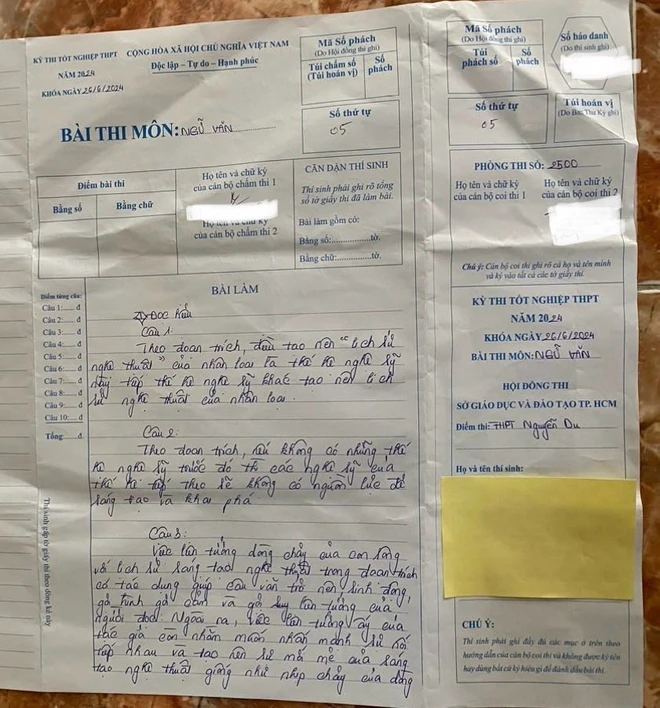 KỲ THI TỐT NGHIỆP THPT
NĂM 2024
KHÓA NGÀY 26/6/2024
CỘNG HÒA XÃ HỘI CHỦ NGHĨA VIỆT NAM
Độc lập – Tự do – Hạnh phúc
BÀI THI MÔN: NGỮ VĂN
Mã Số phách
(Do Hội đồng thi ghi)
Túi chấm số
(Túi hoán vị)
Số
phách
Số thứ tự
05
Điểm bài thi
Bằng số
Bằng chữ
Họ tên và chữ ký
của cán bộ chấm thi 1
Họ tên và chữ ký
của cán bộ chấm thi 2
CĂN DẶN THÍ SINH
Thí sinh phải ghi rõ tổng
số tờ giấy thi đã làm bài.
Bài làm gồm có:
Bằng số:...............tờ.
Bằng chữ:...............tờ.
Điểm từng câu:
Câu 1:...... đ
Câu 2:...... đ
Câu 3:...... đ
Câu 4:...... đ
Câu 5:...... đ
Câu 6:...... đ
Câu 7:...... đ
Câu 8:...... đ
Câu 9:...... đ
Câu 10:..... đ
Tổng:...... đ
Thí sinh gấp tờ giấy thi theo dòng kẻ này
BÀI LÀM
Đọc hiểu
Câu 1:
Theo đoạn trích, điều tạo nên "lịch sử
nghệ thuật" của nhân loại là thế hệ nghệ sỹ
này tiếp thế hệ nghệ sỹ khác tạo nên lịch
sử nghệ thuật của nhân loại.
Câu 2:
Theo đoạn trích, nếu không có những thế
hệ nghệ sỹ trước đó thì các nghệ sỹ của
thế hệ tiếp theo sẽ không có nguồn lực để
sáng tạo và khai phá
Câu 3:
Việc liên tưởng dòng chảy của con sông
với lịch sử sáng tạo nghệ thuật trong đoạn trích
có tác dụng giúp câu văn trở nên sinh động,
gợi hình gợi cảm và gợi sự liên tưởng của
người đọc. Ngoài ra, việc liên tưởng ấy của
tác giả còn nhằm muốn nhấn mạnh sự nối
tiếp nhau và tạo nên sự mới mẻ của sáng
tạo nghệ thuật giống như nhịp chảy của dòng
Mã Số phách
(Do Hội đồng thi ghi)
Túi
phách số
Số
phách
Số báo danh
(Do thí sinh ghi)
Số thứ tự
05
Túi hoán vị
(Do Ban Thư Ký ghi)
PHÒNG THI SỐ: 2500
Họ tên và chữ ký
của cán bộ coi thi 1
Họ tên và chữ ký
của cán bộ coi thi 2
Chú ý: Cán bộ coi thi ghi rõ cả họ và tên mình
và ký vào tất cả các tờ giấy thi.
KỲ THI TỐT NGHIỆP THPT
NĂM 2024
KHÓA NGÀY 26/6/2024
BÀI THI MÔN: NGỮ VĂN
HỘI ĐỒNG THI
SỞ GIÁO DỤC VÀ ĐÀO TẠO TP. HCM
Điểm thi: THPT Nguyễn Du
Họ và tên thí sinh:
CHÚ Ý:
Thí sinh phải ghi đầy đủ các mục ở trên theo
hướng dẫn của cán bộ coi thi và không được ký tên
hay dùng bất cứ ký hiệu gì để đánh dấu bài thi.